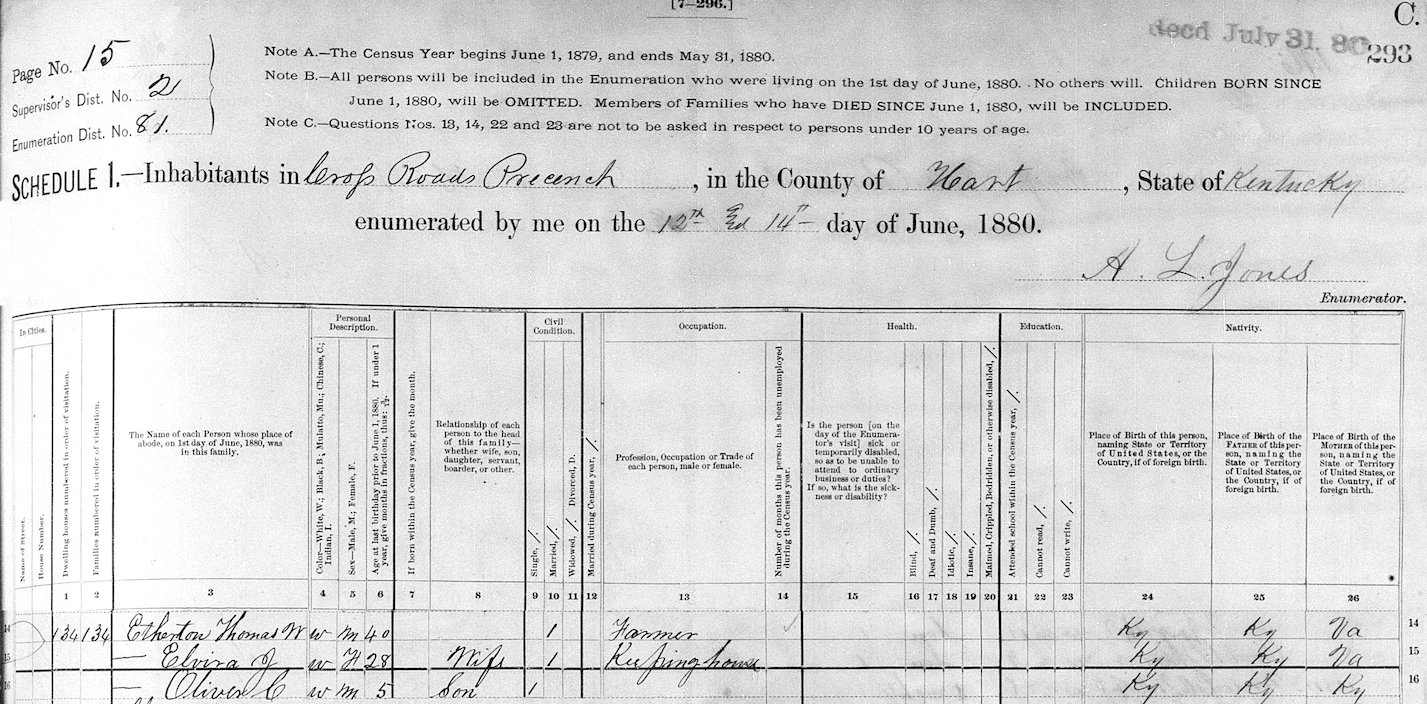 [7-296.]
C.
Recd July 31. 80
293
Page No. 15
Supervisor's Dist. No. 2
Enumeration Dist. No. 81.
Note A.—The Census Year begins June 1, 1879, and ends May 31, 1880.
Note B.—All persons will be included in the Enumeration who were living on the 1st day of June, 1880. No others will. Children BORN SINCE
June 1, 1880, will be OMITTED. Members of Families who have DIED SINCE June 1, 1880, will be INCLUDED.
Note C.—Questions Nos. 13, 14, 22 and 23 are not to be asked in respect to persons under 10 years of age.
SCHEDULE 1.—Inhabitants in Cross Roads Precinct, in the County of Hart, State of Kentucky
enumerated by me on the 12th Ed 14th day of June, 1880.
A. L. Jones
Enumerator.
In Cities.
Name of Street.
House Number.
Dwelling houses numbered in order of visitation.
Families numbered in order of visitation.
The Name of each Person whose place of
abode, on 1st day of June, 1880, was
in this family.
Personal
Description.
Color—White, W.; Black, B.; Mulatto, Mu.; Chinese, C.;
Indian, I.
Sex—Male, M.; Female, F.
Age at last birthday prior to June 1, 1880. If under 1
year, give months in fractions, thus: 3/12.
If born within the Census year, give the month.
Relationship of each
person to the head
of this family—
whether wife, son,
daughter, servant,
boarder, or other.
Civil
Condition.
Single, /.
Married, /.
Widowed, /. Divorced, D.
Married during Census year, /.
Occupation.
Profession, Occupation or Trade of
each person, male or female.
Number of months this person has been unemployed
during the Census year.
Health.
Is the person [on the
day of the Enumera-
tor's visit] sick or
temporarily disabled,
so as to be unable to
attend to ordinary
business or duties?
If so, what is the sick-
ness or disability?
Blind, /.
Deaf and Dumb, /.
Idiotic, /.
Insane, /.
Maimed, Crippled, Bedridden, or otherwise disabled, /.
Education.
Attended school within the Census year, /.
Cannot read, /.
Cannot write, /.
Nativity.
Place of Birth of this person,
naming State or Territory
of United States, or the
Country, if of foreign birth.
Place of Birth of the
FATHER of this per-
son, naming the
State or Territory
of United States, or
the Country, if of
foreign birth.
Place of Birth of the
MOTHER of this per-
son, naming the
State or Territory
of United States, or
the Country, if of
foreign birth.
1 2 3 4 5 6 7 8 9 10 11 12 13 14 15 16 17 18 19 20 21 22 23 24 25 26
14 134 134 Etherton Thomas W w M 40 1 Farmer Ky Ky Va 14
15 — Elvira J w F 28 Wife 1 Keeping house Ky Ky Va 15
16 — Oliver C w M 5 Son 1 Ky Ky Ky 16